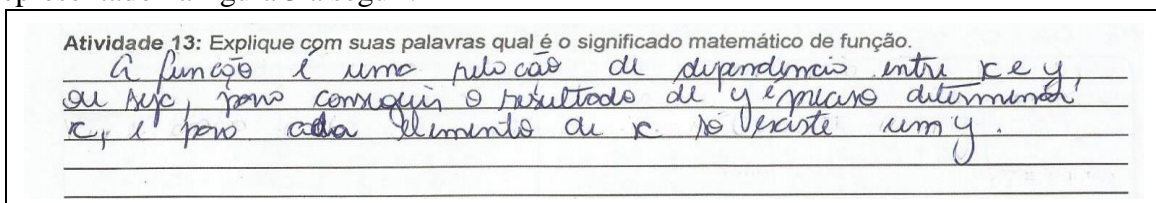 Atividade 13: Explique com suas palavras qual é o significado matemático de função.
A função é uma relação de dependencia entre x e y,
ou seja, para conseguir o resultado de y é preciso determinar
x, e para cada elemento de x só existe um y.